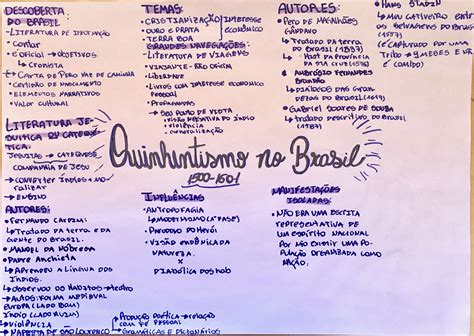 DESCOBERTA
DO BRASIL
- LITERATURA DE INFORMAÇÃO
• CONTAR
• É OFICIAL → OBJETIVOS
↳ CRONISTA
+ CARTA DE PERO VAZ DE CAMINHA
• CERTIDÃO DE NASCIMENTO
• ELEMENTOS NARRATIVOS
• VALOR CULTURAL
LITERATURA JE-
SUÍTICA OU CATEQUÉ-
TICA:
JESUÍTAS → CATEQUESE
COMPANHIA DE JESU
→ CONVERTER ÍNDIOS + MO-
RALIZAR
→ ENSINO
AUTORES:
• FERNANDO CARDIM:
↳ TRATADO DA TERRA E DA
GENTE DO BRASIL.
• MANOEL DA NÓBREGA
• PADRE ANCHIETA
↳ APRENDEU A LÍNGUA DOS
ÍNDIOS.
↳ OBSERVOU OS HÁBITOS → TEATRO
↳ AUTOS: FORMA MEDIEVAL
EUROPA (LADO BOM)
ÍNDIO (LADO RUIM)
↳ VIOLÊNCIA
↳ NA FESTA DE SÃO LOURENÇO
PRODUÇÃO POÉTICA → RELAÇÃO
COM FÉ PESSOAL
GRAMÁTICAS E DICIONÁRIOS
TEMAS:
• CRISTIANIZAÇÃO
• OURO E PRATA
• TERRA BOA
INTERESSE
ECONÔMICO
GRANDES NAVEGAÇÕES:
• LITERATURA DE VIAGENS
• VIAJANTE - NÃO OFICIAL
• LIBERDADE
• LIVROS COM INTERESSE ECONÔMICO
PESSOAL
• PROPAGANDAS
→ SEU PONTO DE VISTA
• VISÃO NEGATIVA DO ÍNDIO
• VIOLÊNCIA
• GENERALIZAÇÃO
Quinhentismo no Brasil
1500-1601
INFLUÊNCIAS
• ANTROPOFAGIA
↳ MODERNISMO (1ª FASE)
• PERÍODO DO HERÓI
• VISÃO ENDÊNICADA
NATUREZA.
X
DIABÓLICA DOS NOB
AUTORES:
• PERO DE MAGALHÃES
GÂNDAVO
↳ TRATADO DA TERRA DO
BRASIL (1557)
↳ HIST DA PROVÍNCIA
DA STA CRUZ (1576)
• AMBRÓSIO FERNANDES
BRANDÃO
↳ DIÁLOGOS DAS GRAN-
DEZAS DO BRASIL (1618)
• GABRIEL SOARES DE SOUSA
↳ TRATADO DESCRITIVO DO BRASIL
(1587)
• HANS STADEN
↳ MEU CATIVEIRO ENTRE
OS SELVAGENS DO BRASIL
(1557)
(É CAPTURADO POR UMA
TRIBO → 9 MESES E NÃO
É COMIDO)
MANIFESTAÇÕES
ISOLADAS:
• NÃO ERA UMA ESCRITA
REPRESENTATIVA DE
UM ESPÍRITO NACIONAL
POR NÃO EXISTIR UMA PO-
PULAÇÃO ORGANIZADA COMO
NAÇÃO.